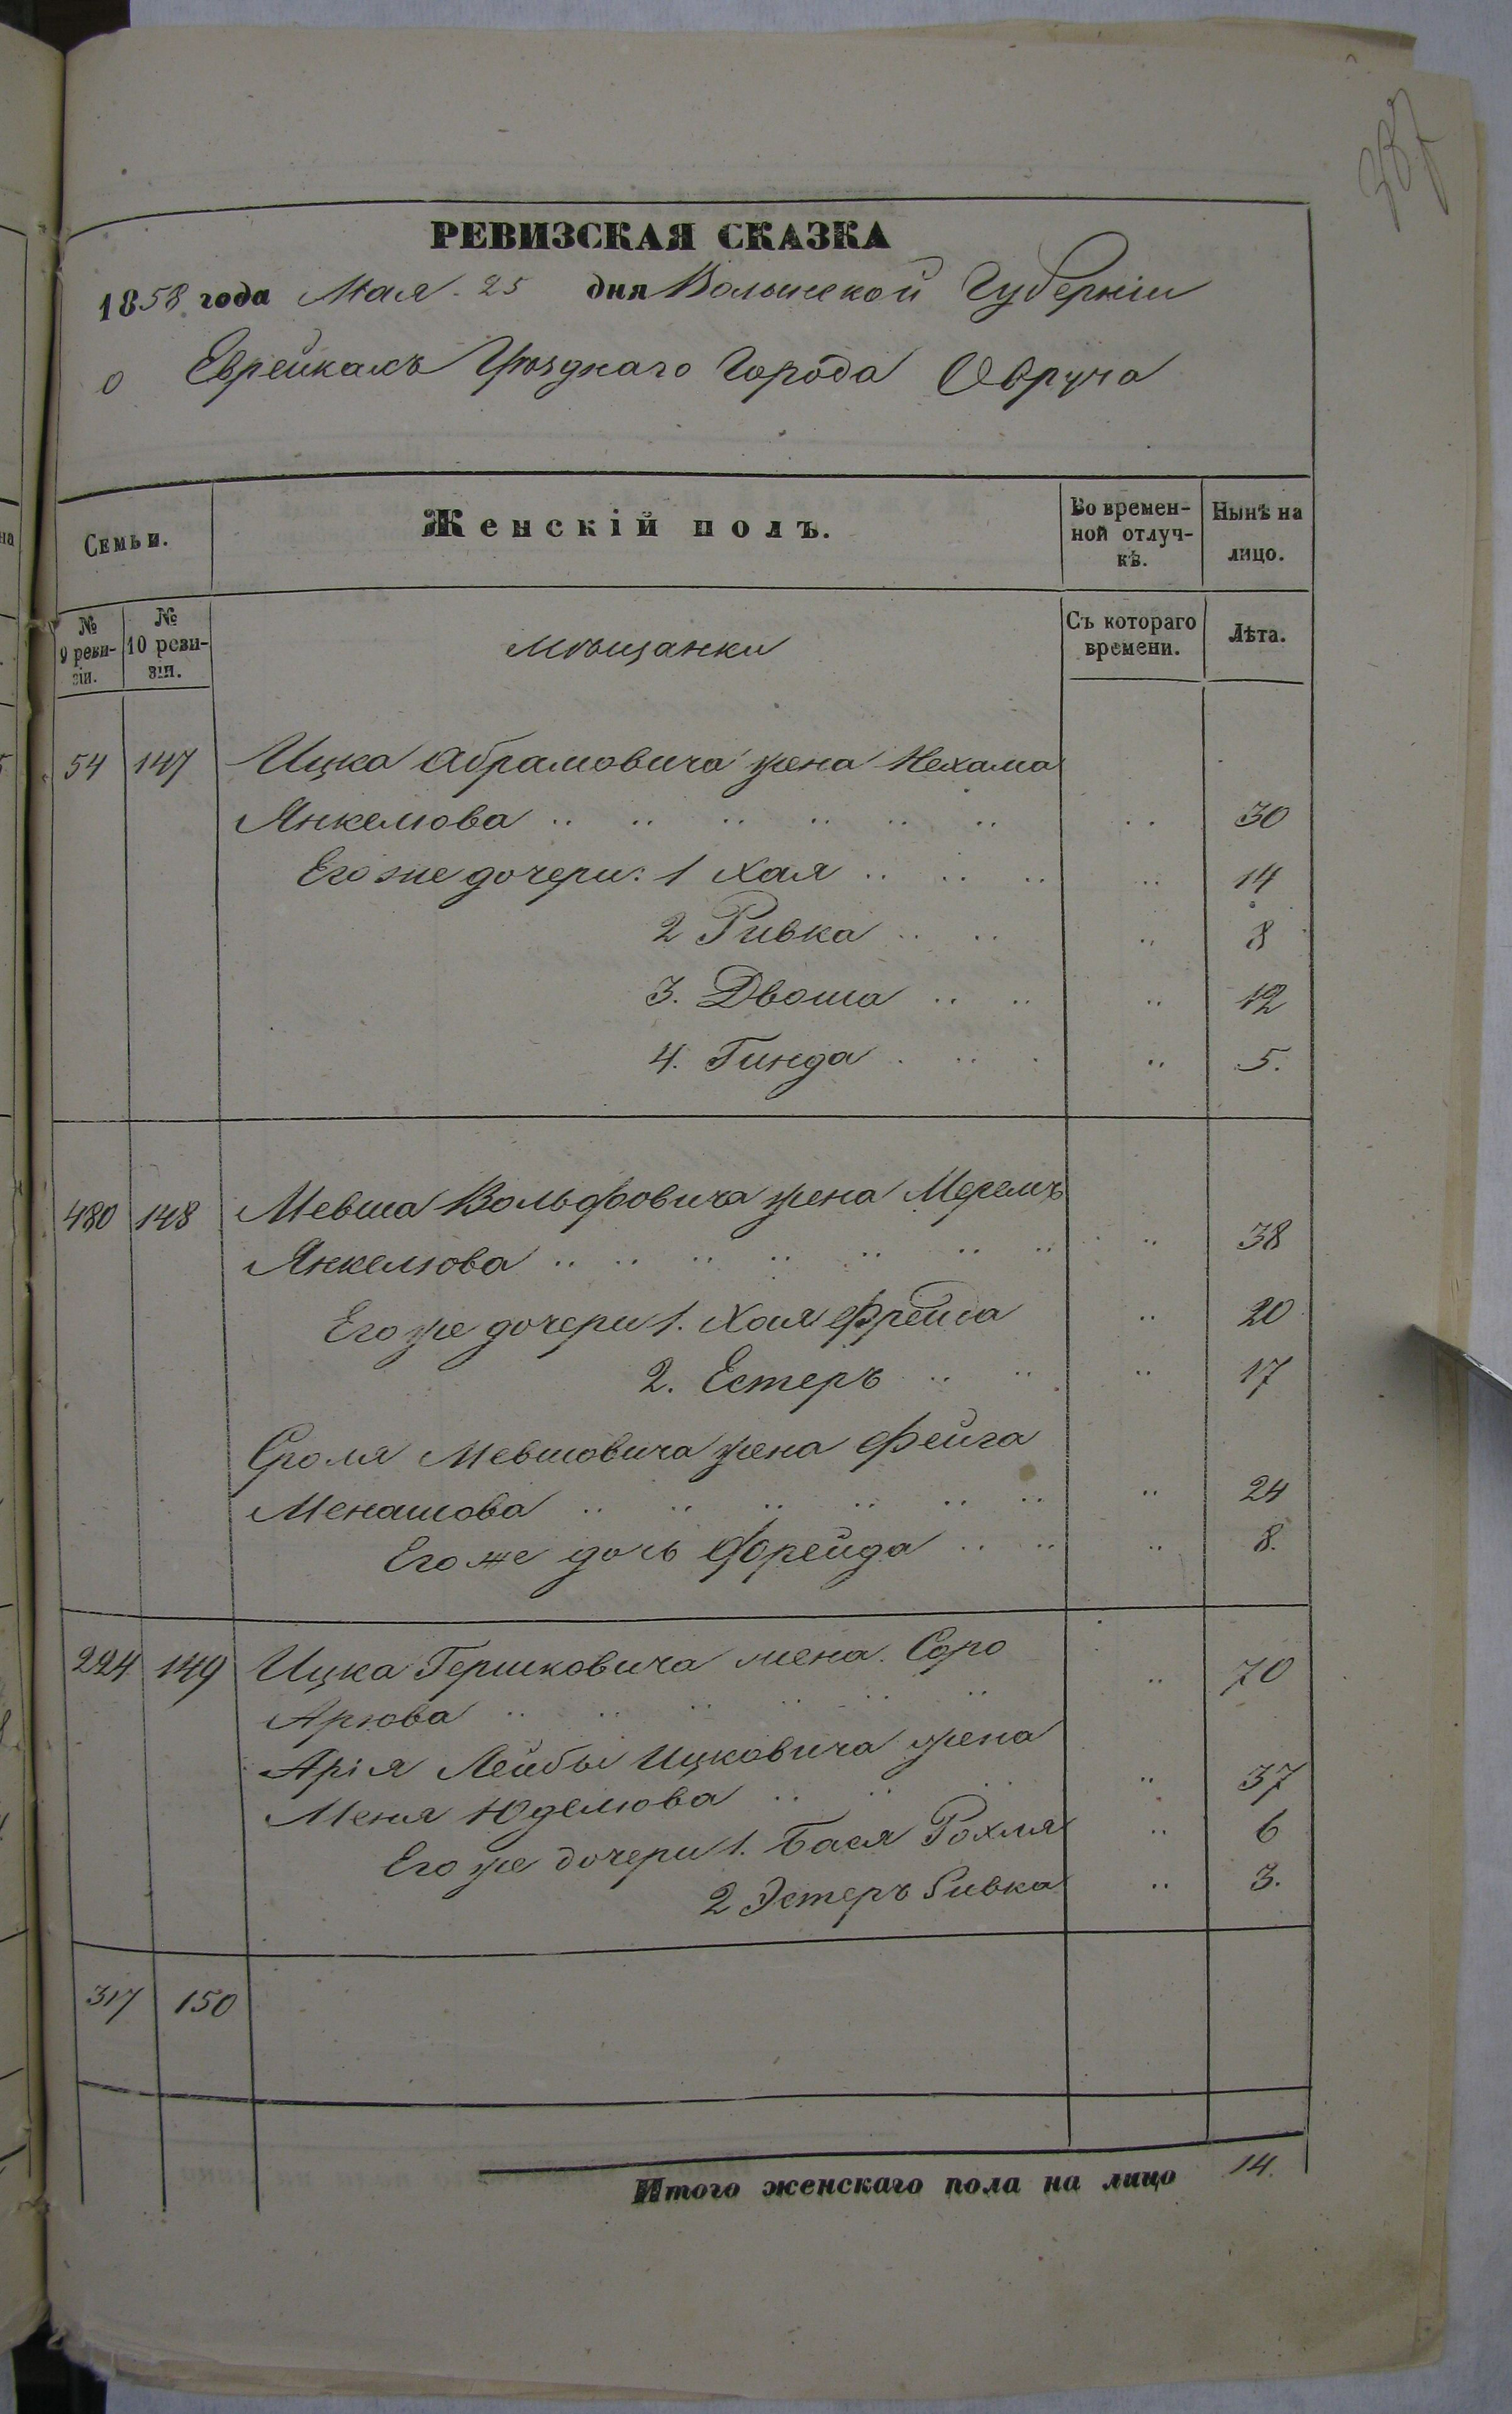 237
РЕВИЗСКАЯ СКАЗКА
1858 года Мая 25 дня Волынской Губерніи
о Еврейкахъ Уѣзднаго Города Овруча
Семьи. Женскій полъ. Во времен- Нынѣ на
ной отлуч- лицо.
кѣ.
№ № Мѣщанки Съ котораго Лѣта.
9 реви- 10 реви- времени.
зіи. зіи.
54 147 Ицка Абрамовича жена Нехама
Янкелюва .. .. .. .. .. .. .. 30
Его же дочери: 1 Хая .. .. .. .. 14
2 Ривка .. .. .. 8
3. Двоша .. .. .. 12
4. Гинда . .. . .. 5.
480 148 Мевша Вольфовича жена Меремъ
Янкелюва .. .. .. .. .. .. .. .. 38
Его же дочери 1. Хая Фрейма .. 20
2. Естеръ .. .. .. 17
Сроля Мевшовича жена Фейга
Менашова .. .. .. .. .. .. .. 24
Его же дочь Фрейда .. .. .. 8.
224 149 Ицка Гершковича жена. Соро .. 70
Арюва .. .. .. .. .. ..
Арія Лейбы Ицковича жена
Меня Юделюва .. .. .. .. 37
Его же дочери 1. Бася Рохля .. 6
2 Эстеръ Ривка .. 3.
317 150
Итого женскаго пола на лицо 14.